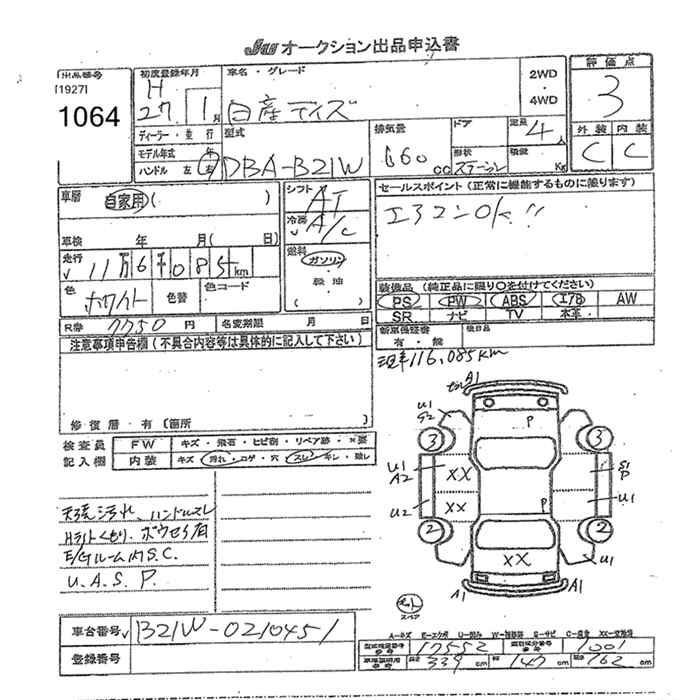 JU オークション出品申込書
出品番号
[1927]
1064
初度登録年月
H
27 年 1 月
車名・グレード
日産デイズ
2WD
・
4WD
評価点
3
外装 内装
C C
ディーラー・並行
モデル年式 年
ハンドル 左 右
型式
DBA-B21W
排気量
660
cc
ドア
形状
ステーション
定員
4 人
積載
Kg
車歴
自家用 ( )
車検 年 月( 日)
走行
11万6千085km
色
ホワイト
色替
色コード
R券 7750 円 名変期限 月 日
シフト
AT
冷房
A/C
燃料
ガソリン
軽油
セールスポイント (正常に機能するものに限ります)
エアコンOK!!
装備品 (純正品に限り○を付けてください)
PS PW ABS エアB AW
SR ナビ TV 本革
新車保証書
有・無
後日品
現車116,085km
注意事項申告欄 (不具合内容等は具体的に記入して下さい)
修復歴・有 (箇所 )
検査員
記入欄
FW キズ・飛石・ヒビ割・リペア跡・×要
内装 キズ・汚れ・コゲ・穴・スレ・キレ・破レ
天張汚れ、ハンドルスレ
Hライトくもり、ボウセイ有
E/Gルーム内S.C.
U.A.S P.
A1
U1
G2
P
3 3
U1
A2
XX
S1
P
U2
XX
P
U1
2 2
XX
U1
A1 A1
スペア
車台番号 B21W-0210451
登録番号
A-キズ E-エクボ U-凹み W-補修跡 S-サビ C-腐食 XX-交換済
型式指定番号 17552 類別区分番号 1001
長さ 339 cm 幅 147 cm 高さ 162 cm